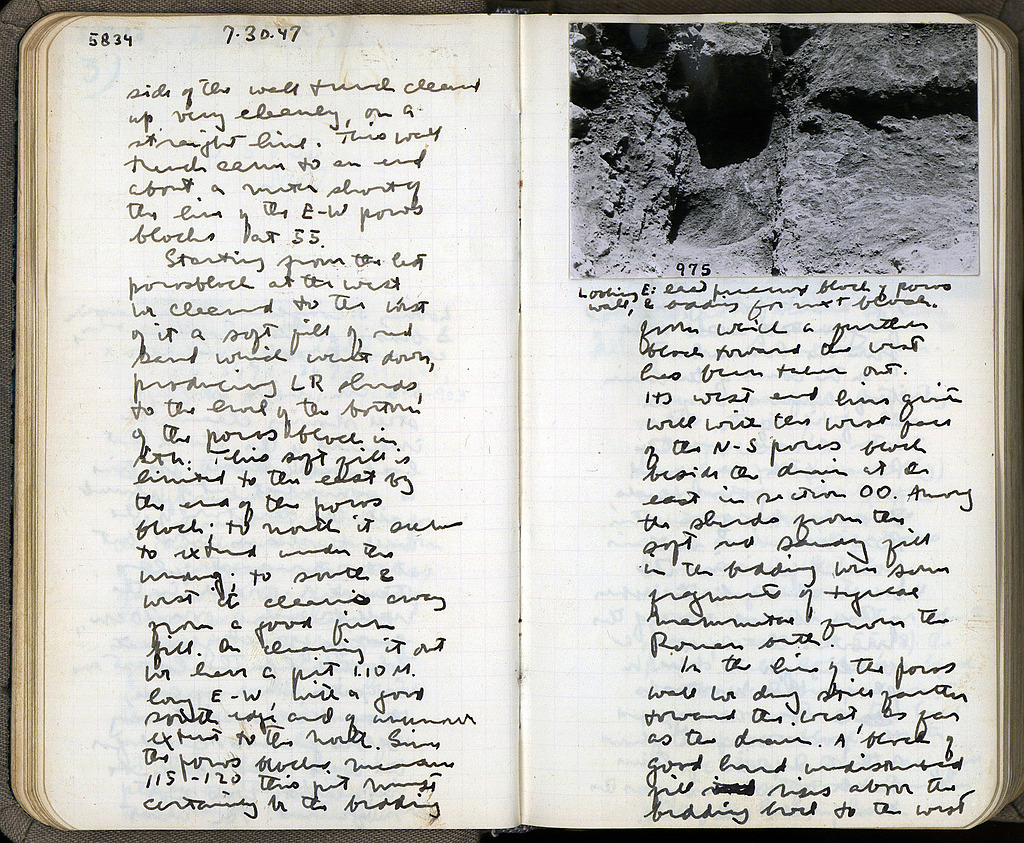 5834
7.30.47
side of the wall trench cleared
up very cleanly, on a
straight line. This wall
trench came to an end
about a meter short of
the line of the E-W poros
blocks at 55.
Starting from the last
poros block at the west
we cleared to the west
of it a soft fill of red
sand which went down,
producing LR sherds,
to the level of the bottom
of the poros block in
situ. This soft fill is
limited to the east by
the end of the poros
block; to north it seems
to extend under the
; to south &
west it cleaned away
from a good firm
fill. On cleaning it out
we have a pit 1.10 M.
long E-W, with a good
south edge and of unknown
extent to the north. Since
the poros blocks measure
115-120 this pit must
certainly be the bedding
975
Looking E: last preserved block of poros
wall, & bedding for next block.
from which a further
block toward the west
has been taken out.
Its west end lines quite
well with the west face
of the N-S poros block
beside the drain at the
east in section OO. Among
the sherds from the
soft red sandy fill
in the bedding were some
fragments of typical
from the
Roman bath.
In the line of the poros
wall we dug still farther
toward the west as far
as the drain. A block of
good hard undisturbed
fill rises above the
bedding level to the west